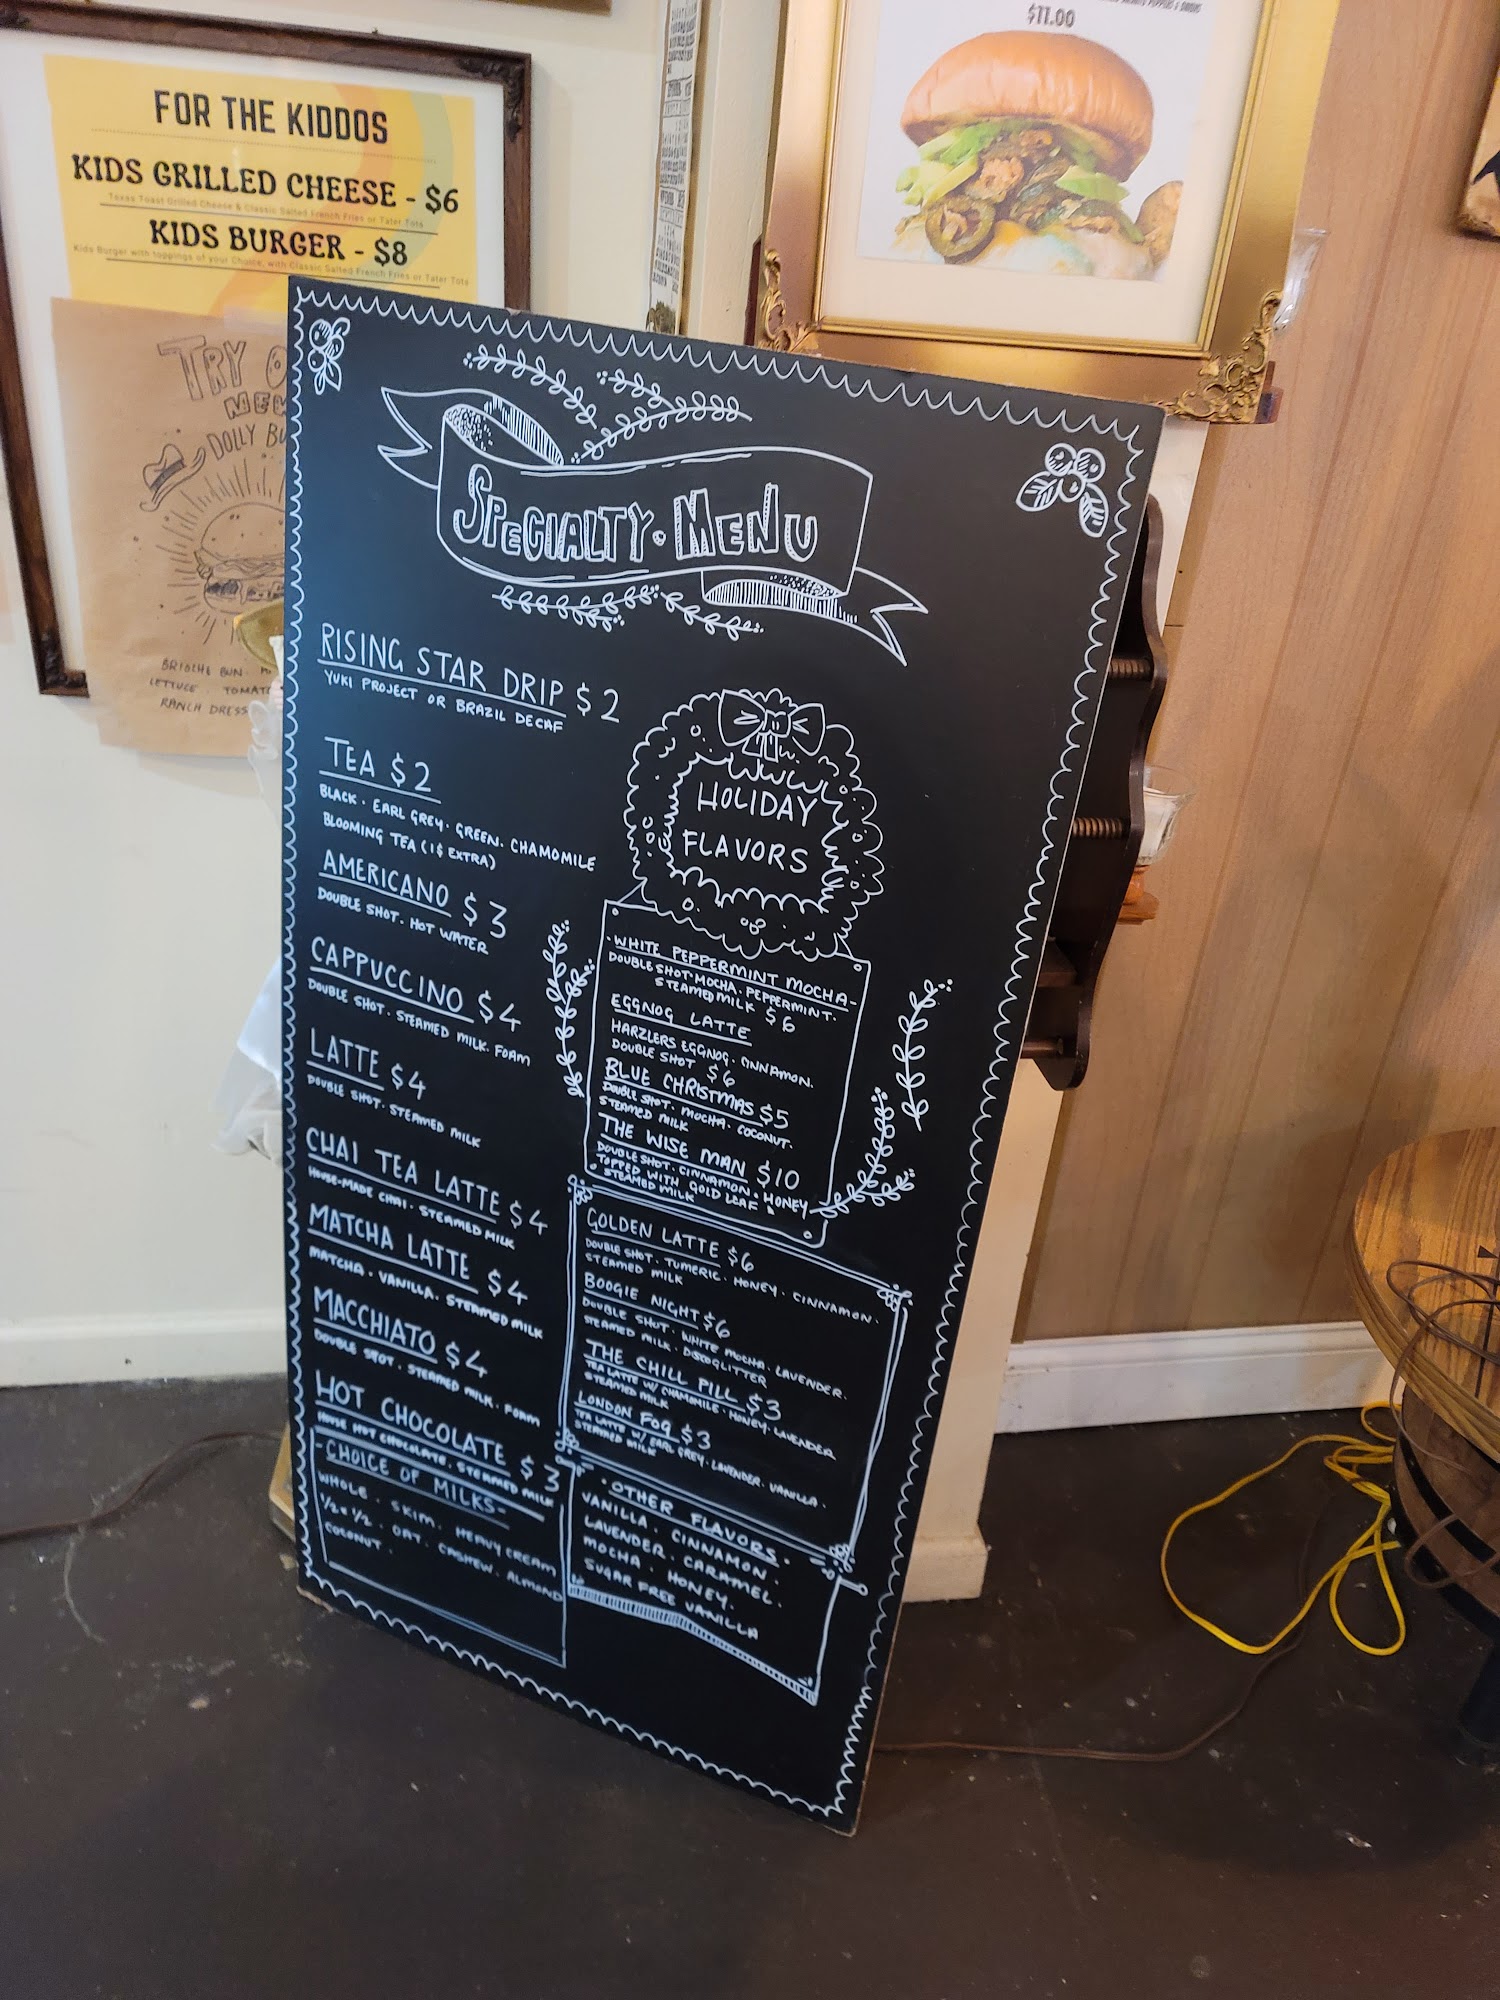 FOR THE KIDDOS
KIDS GRILLED CHEESE - $6
Texas Toast Grilled Cheese & Classic Salted French Fries or Tater Tots
KIDS BURGER - $8
Kids Burger with toppings of your Choice, with Classic Salted French Fries or Tater Tots
TRY
NEW
DOLLY
BRIOCHE BUN.
LETTUCE.
RANCH
$11.00
SPECIALTY • MENU
RISING STAR DRIP $2
YUKI PROJECT OR BRAZIL DECAF
TEA $2
BLACK. EARL GREY. GREEN. CHAMOMILE
BLOOMING TEA (1$ EXTRA)
AMERICANO $3
DOUBLE SHOT. HOT WATER
CAPPUCCINO $4
DOUBLE SHOT. STEAMED MILK. FOAM
LATTE $4
DOUBLE SHOT. STEAMED MILK
CHAI TEA LATTE $4
HOUSE-MADE CHAI. STEAMED MILK
MATCHA LATTE $4
MATCHA. VANILLA. STEAMED MILK
MACCHIATO $4
DOUBLE SHOT. STEAMED MILK. FOAM
HOT CHOCOLATE $3
HOUSE HOT CHOCOLATE. STEAMED MILK
- CHOICE OF MILKS -
WHOLE. SKIM. HEAVY CREAM
1/2 & 1/2. OAT. CASHEW. ALMOND
COCONUT.
HOLIDAY
FLAVORS
• WHITE PEPPERMINT MOCHA -
DOUBLE SHOT. MOCHA. PEPPERMINT.
STEAMED MILK $6
EGGNOG LATTE
HARZLERS EGGNOG. CINNAMON.
DOUBLE SHOT $6
BLUE CHRISTMAS $5
DOUBLE SHOT. MOCHA. COCONUT.
STEAMED MILK
THE WISE MAN $10
DOUBLE SHOT. CINNAMON. HONEY
TOPPED WITH GOLD LEAF
STEAMED MILK
GOLDEN LATTE $6
DOUBLE SHOT. TUMERIC. HONEY. CINNAMON.
STEAMED MILK
BOOGIE NIGHT $6
DOUBLE SHOT. WHITE MOCHA. LAVENDER.
STEAMED MILK. DISCOGLITTER
THE CHILL PILL $3
TEA LATTE W/ CHAMOMILE. HONEY. LAVENDER
STEAMED MILK
LONDON FOG $3
TEA LATTE W/ EARL GREY. LAVENDER. VANILLA.
STEAMED MILK
• OTHER FLAVORS •
VANILLA. CINNAMON.
LAVENDER. CARAMEL.
MOCHA. HONEY.
SUGAR FREE VANILLA